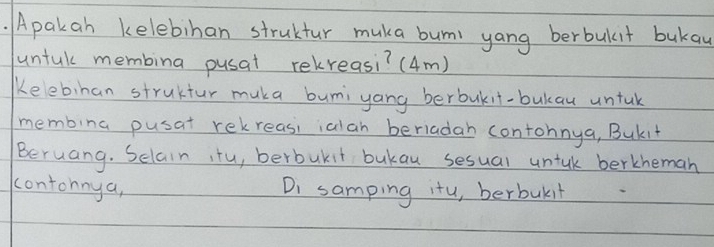 . Apakah kelebihan struktur muka bumi yang berbukit bukau
untuk membina pusat rekreasi? (4m)
Kelebihan struktur muka bumi yang berbukit-bukau untuk
membina pusat rekreasi ialah beriadah contohnya, Bukit
Beruang. Selain itu, berbukit bukau sesuai untuk berkhemah
contohnya, Di samping itu, berbukit -